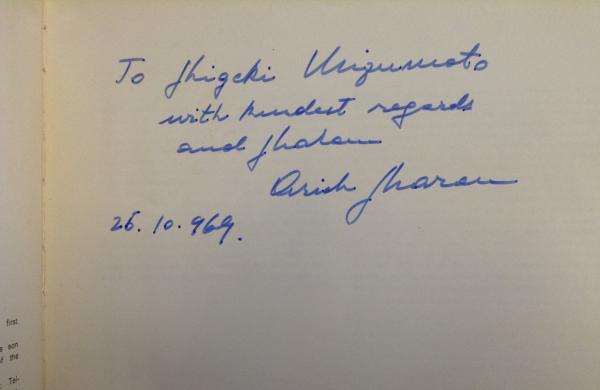 To Shigeki Mizumoto
with kindest regards
and Shalom
Arieh Sharon
26.10.969.
first
son
the
Tel-